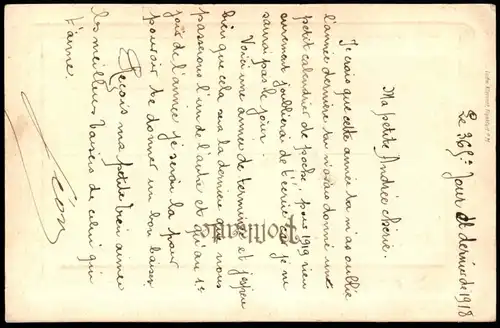 Le 365e Jour et dernier de 1918
Ma petite Andrée chérie.
Je crois que cette année tu m'as oublié
l'année dernière tu m'avais donné une
petit calendrier de poche, pour 1919 rien
aurement j'oublierai de t'écrire car je ne
saurai pas le jour.
Voici une année de terminée et j'espère
bien que cela sera la dernière que nous
passerons l'un de l'autre et qu'au 1er
jour de l'année je serai là pour
pouvoir te donner un bon baiser
Reçois ma petite bien aimée
les meilleurs baisers de celui qui
t'aime.
Léon
Postkarte